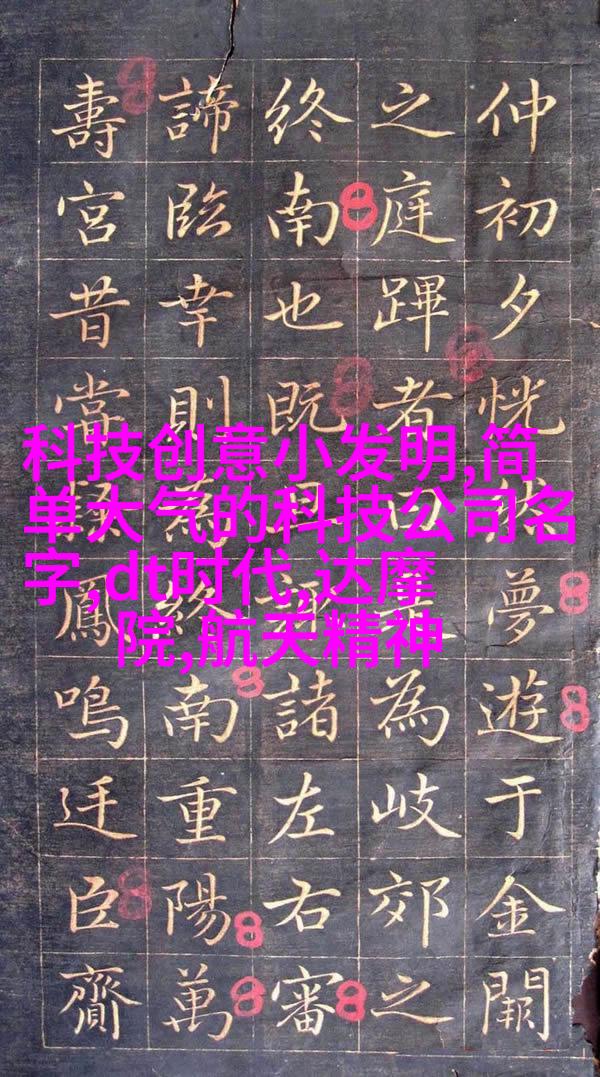 仲初夕恍伏夢遊于金闕
之庭蹕者為岐郊之
終南也既諸左右審
諦臨幸則為終南重陽萬
壽宮昔當鳳鳴迁臣齎
科技创意小发明,简
单大气的科技公司名
字,dt时代,达摩
院,航天精神